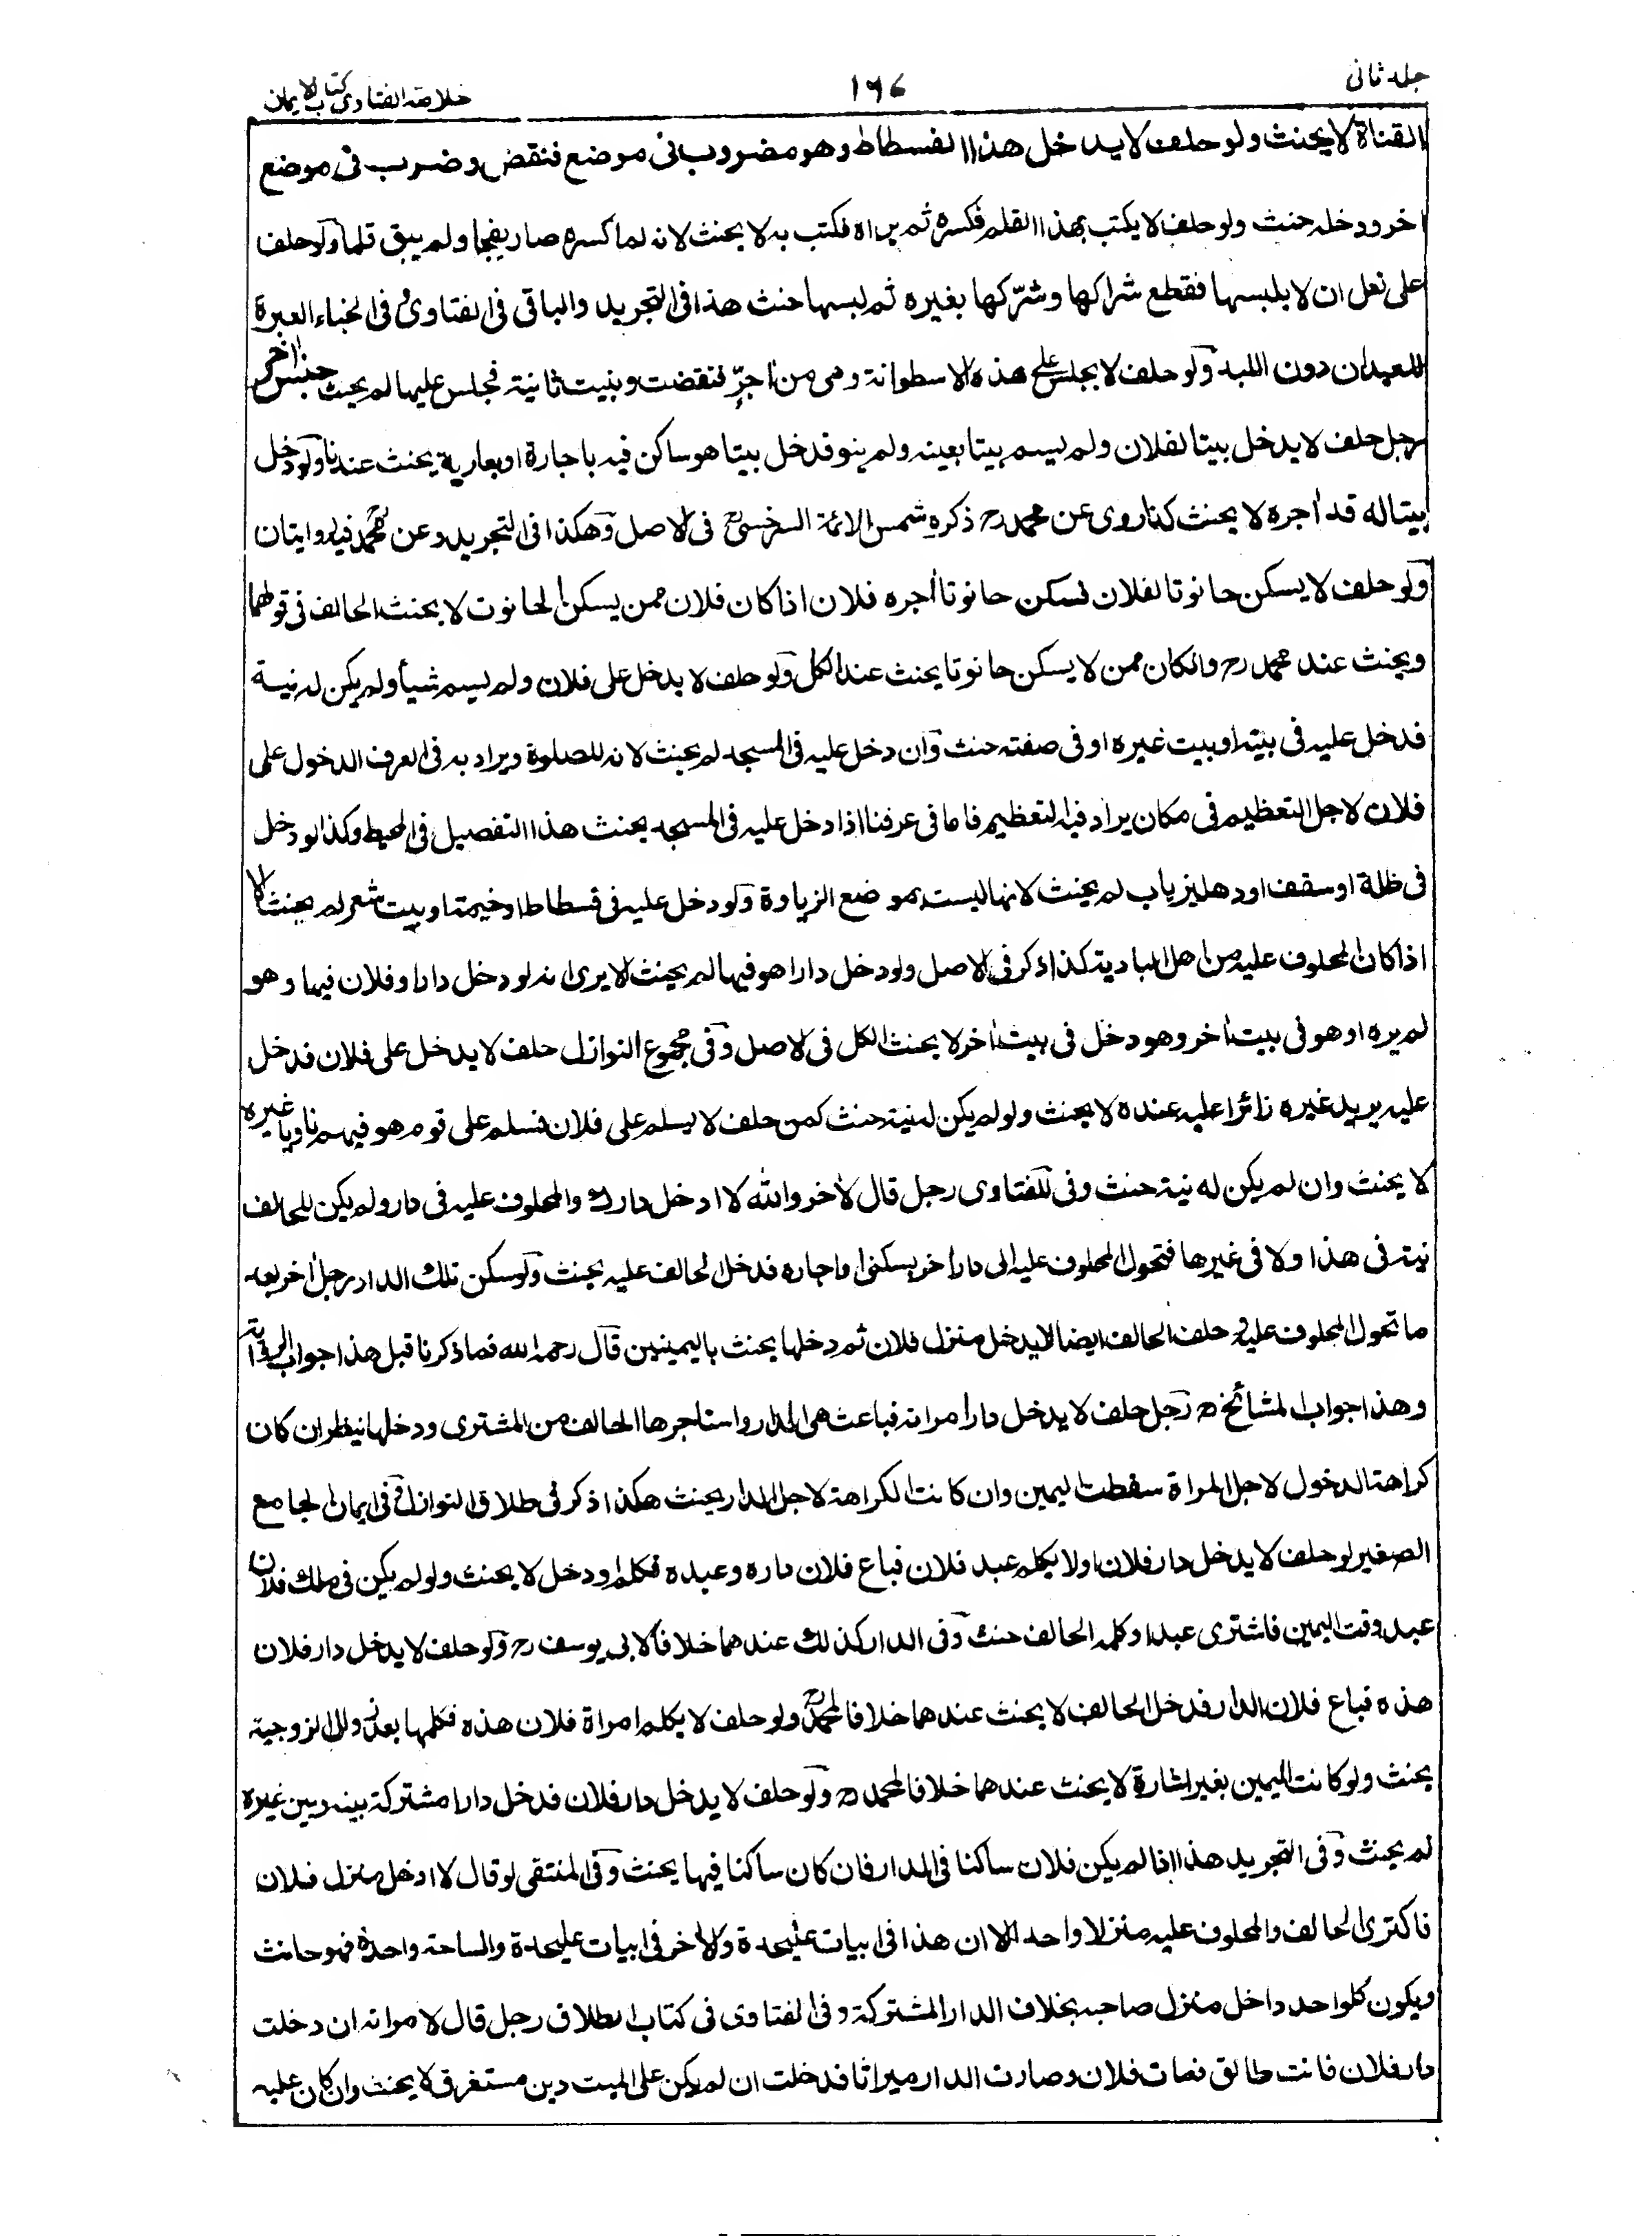 جلد ثانی
۱۴۶
خلاصة الفتاوى كتاب الايمان
القناة لا يحنث ولو حلف لا يدخل هذا الفسطاط وهو مضروب فى موضع فنقض وضرب فى موضع
اخر ودخله حنث ولو حلف لا يكتب بهذا القلم فكسره ثم براه فكتب به لا يحنث لانه لما كسره صار ولم يبق قلما ولو حلف
على نعل ان لا يلبسها فقطع شراكها وشرّكها بغيره ثم لبسها حنث هذا فى التجريد والباقى فى الفتاوى وفى الخباء العبرة
للعيدان دون اللبد ولو حلف لا يجلس على هذه الاسطوانة وهى من اجرّ فنقضت وبنيت ثانية فجلس عليها لم يحنث جنس اخر
رجل حلف لا يدخل بيتا لفلان ولم يسم بيتا بعينه ولم ينو فدخل بيتا هو ساكن فيه باجارة او بعارية يحنث عندنا ولو دخل
بيتا له قد اجره لا يحنث كذا روى عن محمد رح ذكره شمس الائمة السرخسى رح فى الاصل وهكذا فى التجريد وعن محمد رح فيه روايتان
ولو حلف لا يسكن حانوتا لفلان فسكن حانوتا اجره فلان اذا كان فلان ممن يسكن الحانوت لا يحنث الحالف فى قولهما
ويحنث عند محمد رح وانكان ممن لا يسكن حانوتا يحنث عند الكل ولو حلف لا يدخل على فلان ولم يسم شيأ ولم يكن له نية
فدخل عليه فى بيته او بيت غيره او فى صفته حنث وان دخل عليه فى المسجد لم يحنث لانه للصلوة ويراد به فى العرف الدخول على
فلان لاجل التعظيم فى مكان يراد فيه التعظيم فاما فى عرفنا اذا دخل عليه فى المسجد يحنث هذا التفصيل فى المحيط وكذا لو دخل
فى ظلة او سقف او دهليز باب لم يحنث لانها ليست بموضع الزيارة ولو دخل عليه فى فسطاط او خيمة او بيت شعر لم يحنث الا
اذا كان المحلوف عليه من اهل البادية كذا ذكر فى الاصل ولو دخل دارا هو فيها لم يحنث الا يرى انه لو دخل دارا وفلان فيها وهو
لم يره او هو فى بيت اخر وهو دخل فى بيت اخر لا يحنث الكل فى الاصل وفى مجموع النوازل حلف لا يدخل على فلان فدخل
عليه يريد غيره زائرا عليه عنده لا يحنث ولو لم يكن له نية حنث كمن حلف لا يسلم على فلان فسلم على قوم هو فيهم ناويا غيره
لا يحنث وان لم يكن له نية حنث وفى الفتاوى رجل قال لاخر والله لا ادخل دارك والمحلوف عليه فى دار ولم يكن للحالف
نية فى هذا ولا فى غيرها فتحول المحلوف عليه الى دار اخر بسكنى او اجاره فدخل الحالف عليه يحنث ولو سكن تلك الدار رجل اخر بعد
ما تحول المحلوف عليه وحلف الحالف ايضا لا يدخل منزل فلان ثم دخلها يحنث باليمينين قال رحمه الله فما ذكرنا قبل هذا جواب الرواية
وهذا جواب المشائخ رح رجل حلف لا يدخل دار امرأته فباعت هى الدار واستاجرها الحالف من المشترى ودخلها ينظر ان كان
كراهته الدخول لاجل المرأة سقطت اليمين وان كانت الكراهة لاجل الدار يحنث هكذا ذكر فى طلاق النوازل وفى ايمان الجامع
الصغير لو حلف لا يدخل دار فلان او لا يكلم عبد فلان فباع فلان داره وعبده فكلم او دخل لا يحنث ولو لم يكن فى ملك فلان
عبد وقت اليمين فاشترى عبدا وكلمه الحالف حنث وفى الدار كذلك عندهما خلافا لابى يوسف رح ولو حلف لا يدخل دار فلان
هذه فباع فلان الدار فدخل الحالف لا يحنث عندهما خلافا لمحمد رح ولو حلف لا يكلم امرأة فلان هذه فكلمها بعد زوال الزوجية
يحنث ولو كانت اليمين بغير اشارة لا يحنث عندهما خلافا لمحمد رح ولو حلف لا يدخل دار فلان فدخل دارا مشتركة بينه وبين غيره
لم يحنث وفى التجريد هذا اذا لم يكن فلان ساكنا فى الدار فان كان ساكنا فيها يحنث وفى المنتقى لو قال لا ادخل منزل فلان
فاكترى الحالف والمحلوف عليه منزلا واحدا الا ان هذا فى ابيات عليحدة والاخر فى ابيات عليحدة والساحة واحدة فهو حانث
ويكون كلواحد داخل منزل صاحبه بخلاف الدار المشتركة وفى الفتاوى فى كتاب الطلاق رجل قال لامرأته ان دخلت
دار فلان فانت طالق فمات فلان وصارت الدار ميراثا فدخلت ان لم يكن على الميت دين مستغرق لا يحنث وان كان عليه